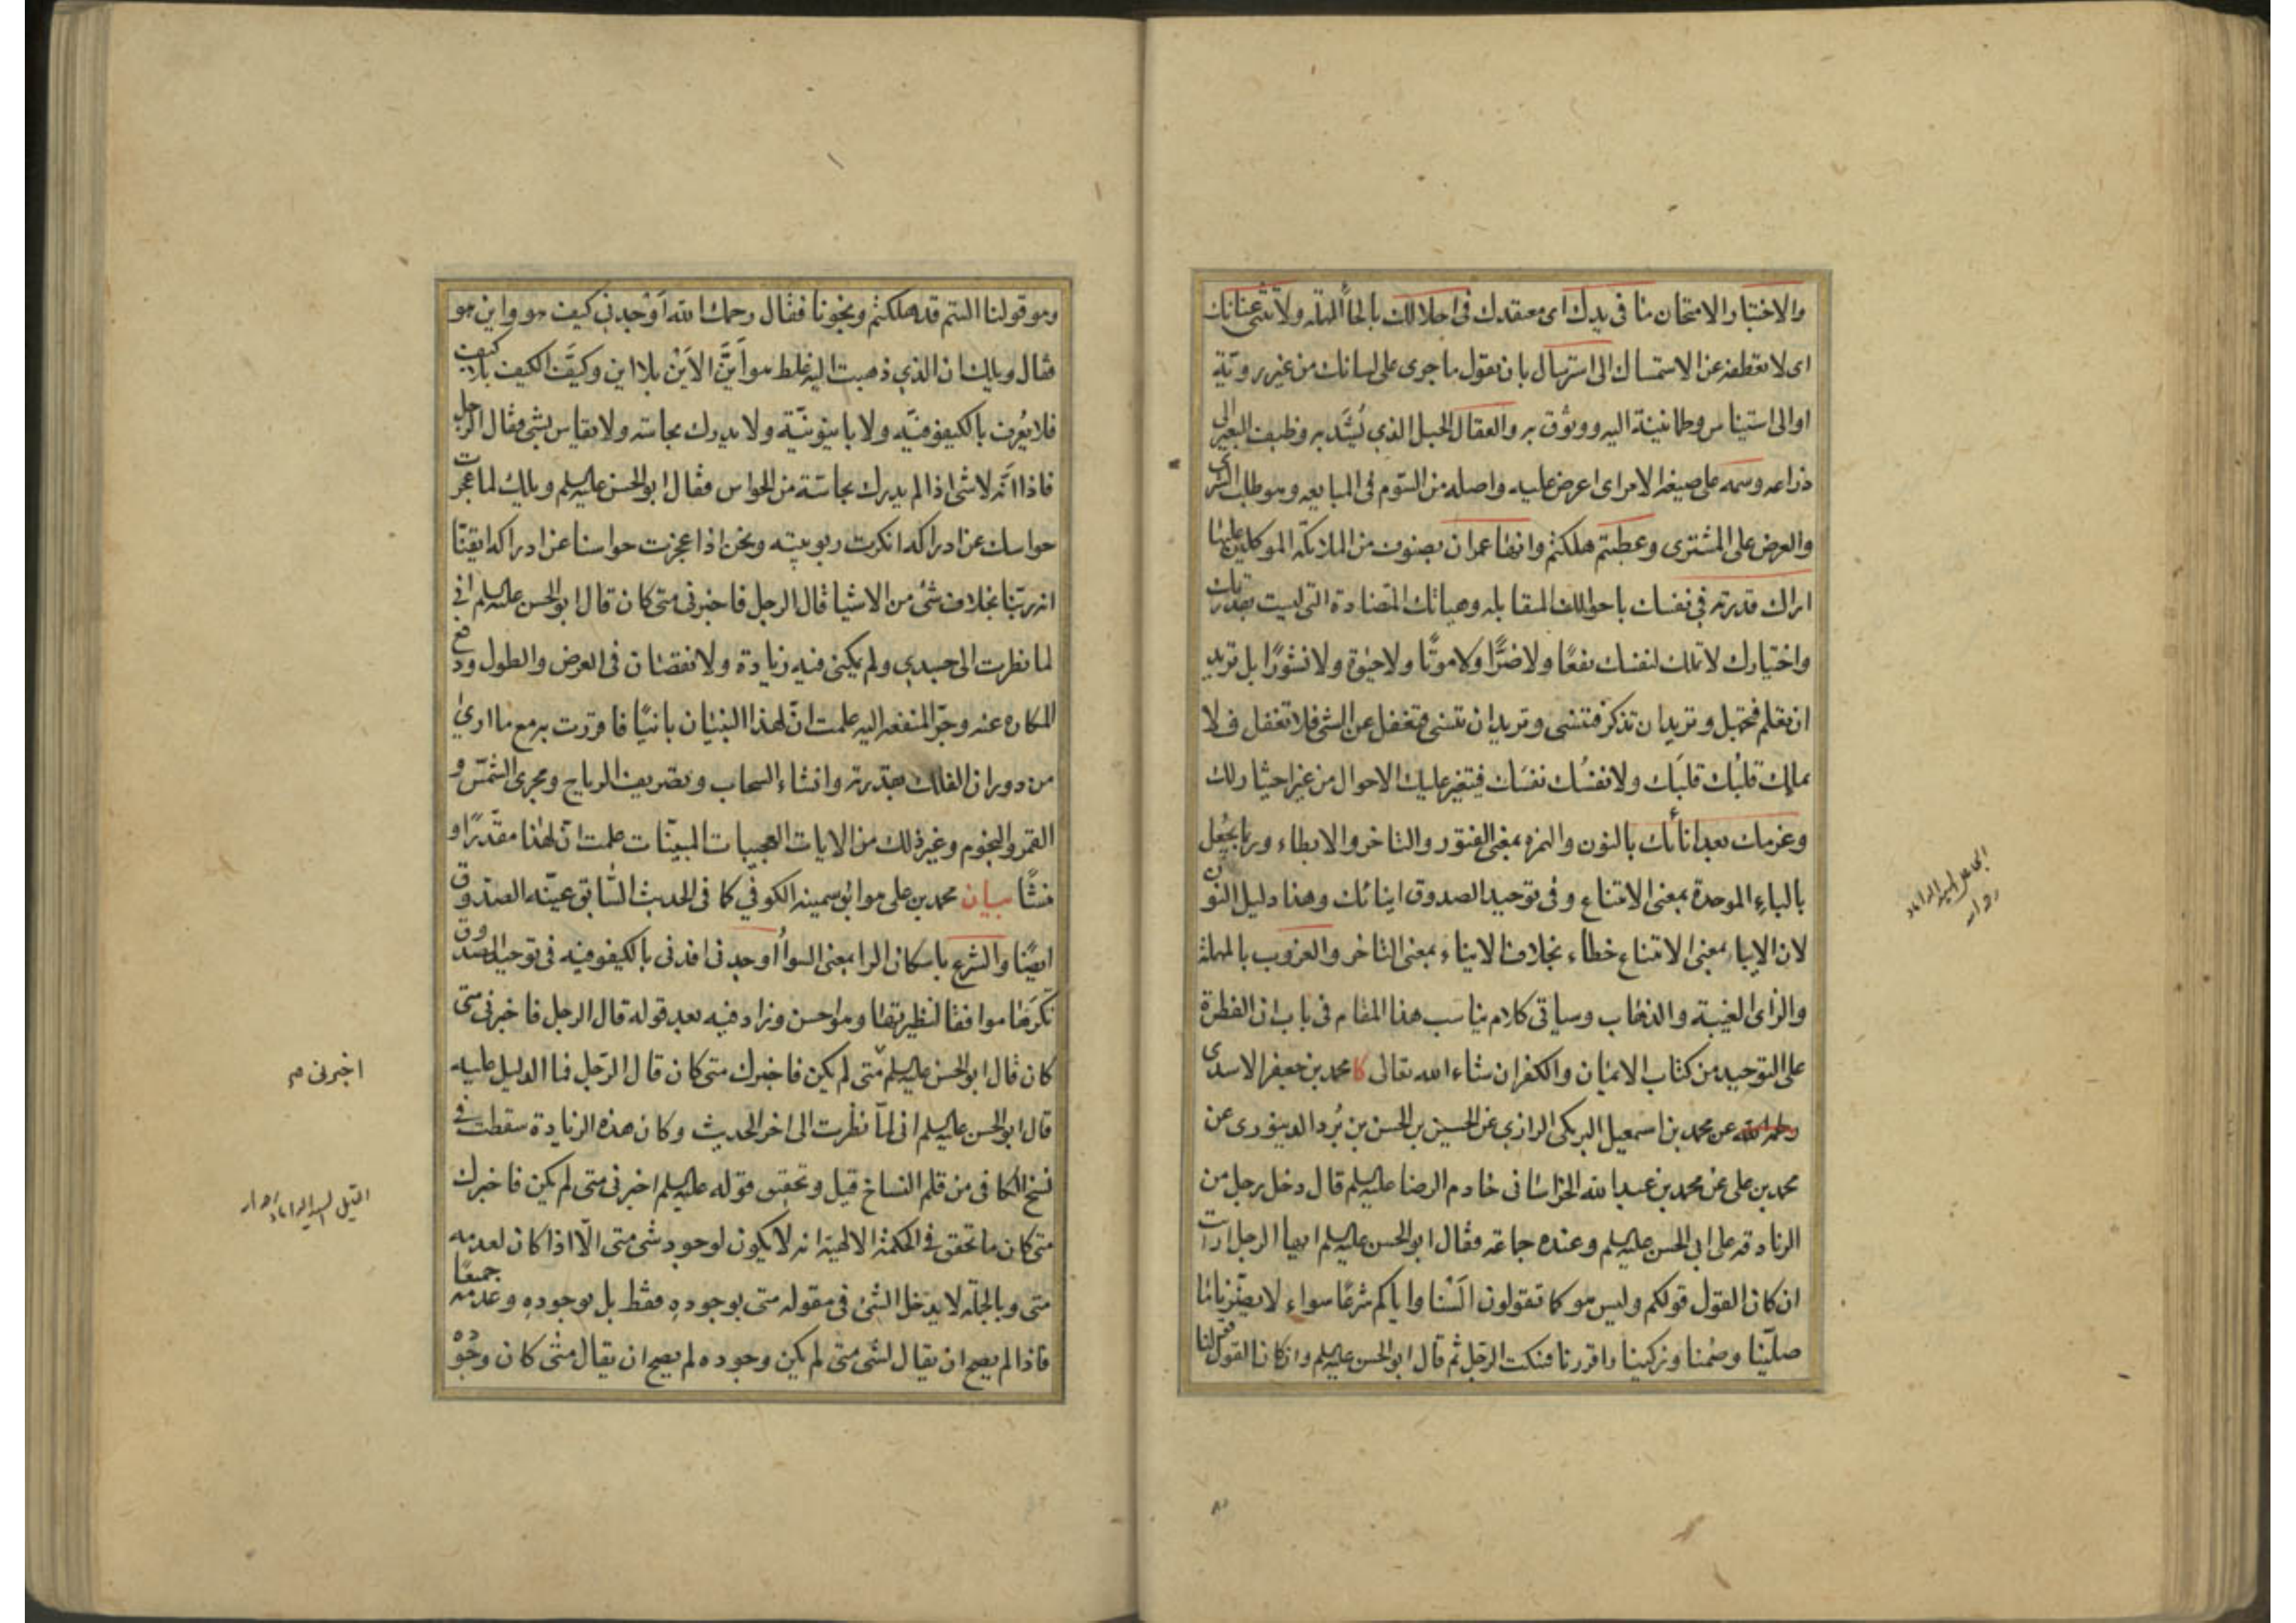 والاختبار والامتحان ما فى يدك اى معتقدك فى اجلالك بالحاء المهملة ولا تثنى عنانك
اى لا تعطفه عن الاستمساك الى استرسال بان تقول ما جرى على لسانك من غير روية
او الى استيناس وطمانينة اليه ووثوق به والعقال الحبل الذي يُشَد به وظيف البعير الى
ذراعه وسمه على صيغة الامر اى اعرض عليه واصله من السّوم فى المبايعه وهو طلب الشرى
والعرض على المشترى وعطبتم هلكتم وانقاعمران بصنوف من الملائكة الموكلين عليها
اراك قدرته في نفسك باحوالك المتقابله وهياتك المتضادة التى ليست بقدرتك
واختيارك لا تملك لنفسك نفعًا ولا ضرًّا ولا موتًا ولا حيوة ولا نشورًا بل تريد
ان تعلم فتجهل وتريد ان تذكر فتنسى وتريد ان تنسى فتغفل عن الشى فلا تغفل فلا
يملك قلبُك قلبَك ولا نفسُك نفسَك فيتغير عليك الاحوال من غير اختيارلك
وعزمك بعد اناتك بالنون والهمزه بمعنى الفتور والتاخر والابطاء وربما يجعل
بالباء الموحدة بمعنى الامتناع وفى توحيد الصدوق اينائك وهذا دليل النون
لان الاباء بمعنى الامتناع خطاء بخلاف الايناء بمعنى التاخر والعزوب بالمهملة
والزاى الغيبة والذهاب وسياتى كلام يناسب هذا المقام فى باب ان الفطرة
على التوحيد من كتاب الايمان والكفر ان شاء الله تعالى كا محمد بن جعفر الاسدى
رحمه الله عن محمد بن اسمعيل البرمكى الرازي عن الحسين بن الحسن بن بُرد الدينورى عن
محمد بن على عن محمد بن عبدالله الخراسانى خادم الرضا عليه السلم قال دخل رجل من
الزنادقه على ابى الحسن عليه السلم وعنده جماعة فقال ابو الحسن عليه السلم ايها الرجل ارايت
ان كان القول قولكم وليس هو كما تقولون اَلَسْنا واياكم شرعًا سواء لا يضرنا ما
صلّينا وصُمنا وزكينا واقررنا فسكت الرّجل ثم قال ابو الحسن عليه السلم وان كان القول قولنا
وهو قولنا الستم قد هلكتم ونجونا فقال رحمك الله اَوْجِدنى كيف هو واين هو
فقال ويلك ان الذي ذهبت اليه غلط هو اَيَّنَ الاَيْن بلا اين وكيَّف الكيف بلا كيف
فلا يُعرف بالكيفوفيّه ولا باينونيّة ولا يدرك بحاسّه ولا يقاس بشى فقال الرجل
فاذا انّه لا شى اذا لم يدرك بحاسّة من الحواس فقال ابو الحسن عليه السلم ويلك لما عجزت
حواسك عن ادراكه انكرت ربوبيته ونحن اذا عجزت حواسنا عن ادراكه ايقنّا
انه ربّنا بخلاف شئ من الاشيا قال الرجل فاخبرنى متى كان قال ابو الحسن عليه السلم انى
لما نظرت الى جسدي ولم يمكنى فيه زيادة ولا نقصان فى العرض والطول ودفع
المكاره عنه وجرّ المنفعه اليه علمت انّ لهذا البنيان بانيًا فاقررت به مع ما ارىٰ
من دوران الفلك بقدرته وانشاء السحاب وتصريف الرياح ومجرى الشمس و
القمر والنجوم وغير ذلك من الايات العجيبات المبيّنات علمت انّ لهذا مقدّرًا و
منشئًا بيان محمد بن على هو ابو سمينه الكوفي كما فى الحديث السّابق عينّه الصدوق
ايضًا والشرع باسكان الرا بمعنى السواء أوجدنى افدنى بالكيفوفيه فى توحيد الصدوق
تكرها موافقا لنظيرتها وهو احسن وزاد فيه بعد قوله قال الرجل فاخبرنى متى
كان قال ابو الحسن عليه السلم متى لم يكن فاخبرك متى كان قال الرّجل فما الدليل عليه
قال ابو الحسن عليه السلم انى لمّا نظرت الى اخر الحديث وكان هذه الزيادة سقطت فى
نسخ الكافى من قلم النساخ قيل وتحقيق قوله عليه السلم اخبرنى متى لم يكن فاخبرك
متى كان ما تحقق فى الحكمة الالهية انه لا يكون لوجود شى متى الّا اذا كان لعدمه
متى وبالجملة لا يدخل الشئ فى مقولة متى بوجوده فقط بل بوجوده وعدمه جميعًا
فاذا لم يصح ان يقال لشى متى لم يكن وجوده لم يصح ان يقال متى كان وجوده
اخبرنى م